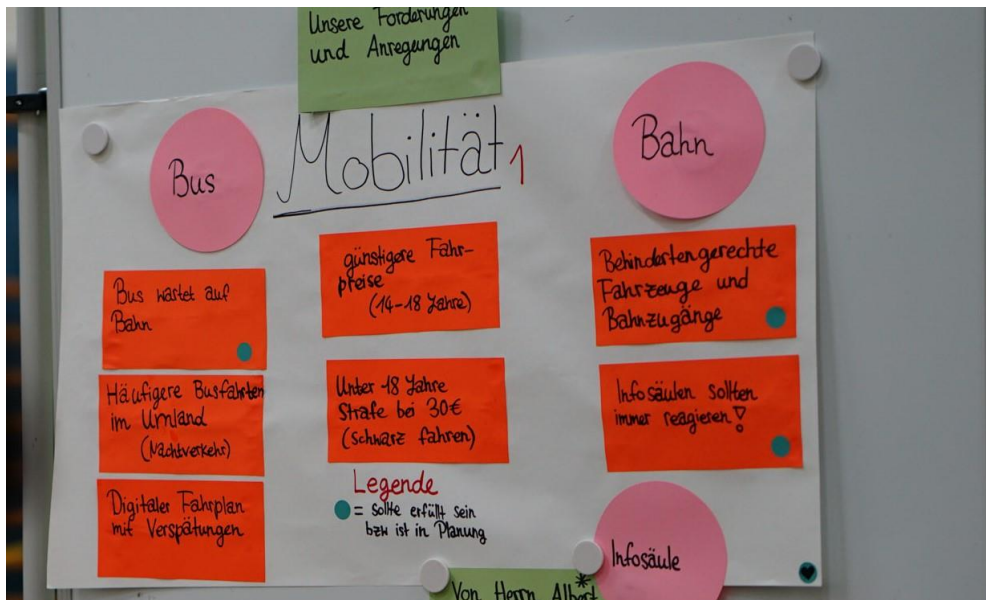 Unsere Forderungen
und Anregungen
Mobilität 1
Bus
Bus wartet auf
Bahn
Häufigere Busfahrten
im Umland
(Nachtverkehr)
Digitaler Fahrplan
mit Verspätungen
günstigere Fahr-
preise
(14-18 Jahre)
Unter 18 Jahre
Strafe bei 30€
(schwarz fahren)
Legende
= sollte erfüllt sein
bzw ist in Planung
Bahn
Behindertengerechte
Fahrzeuge und
Bahnzugänge
Infosäulen sollten
immer reagieren!
Infosäule
Von Herrn Albert*